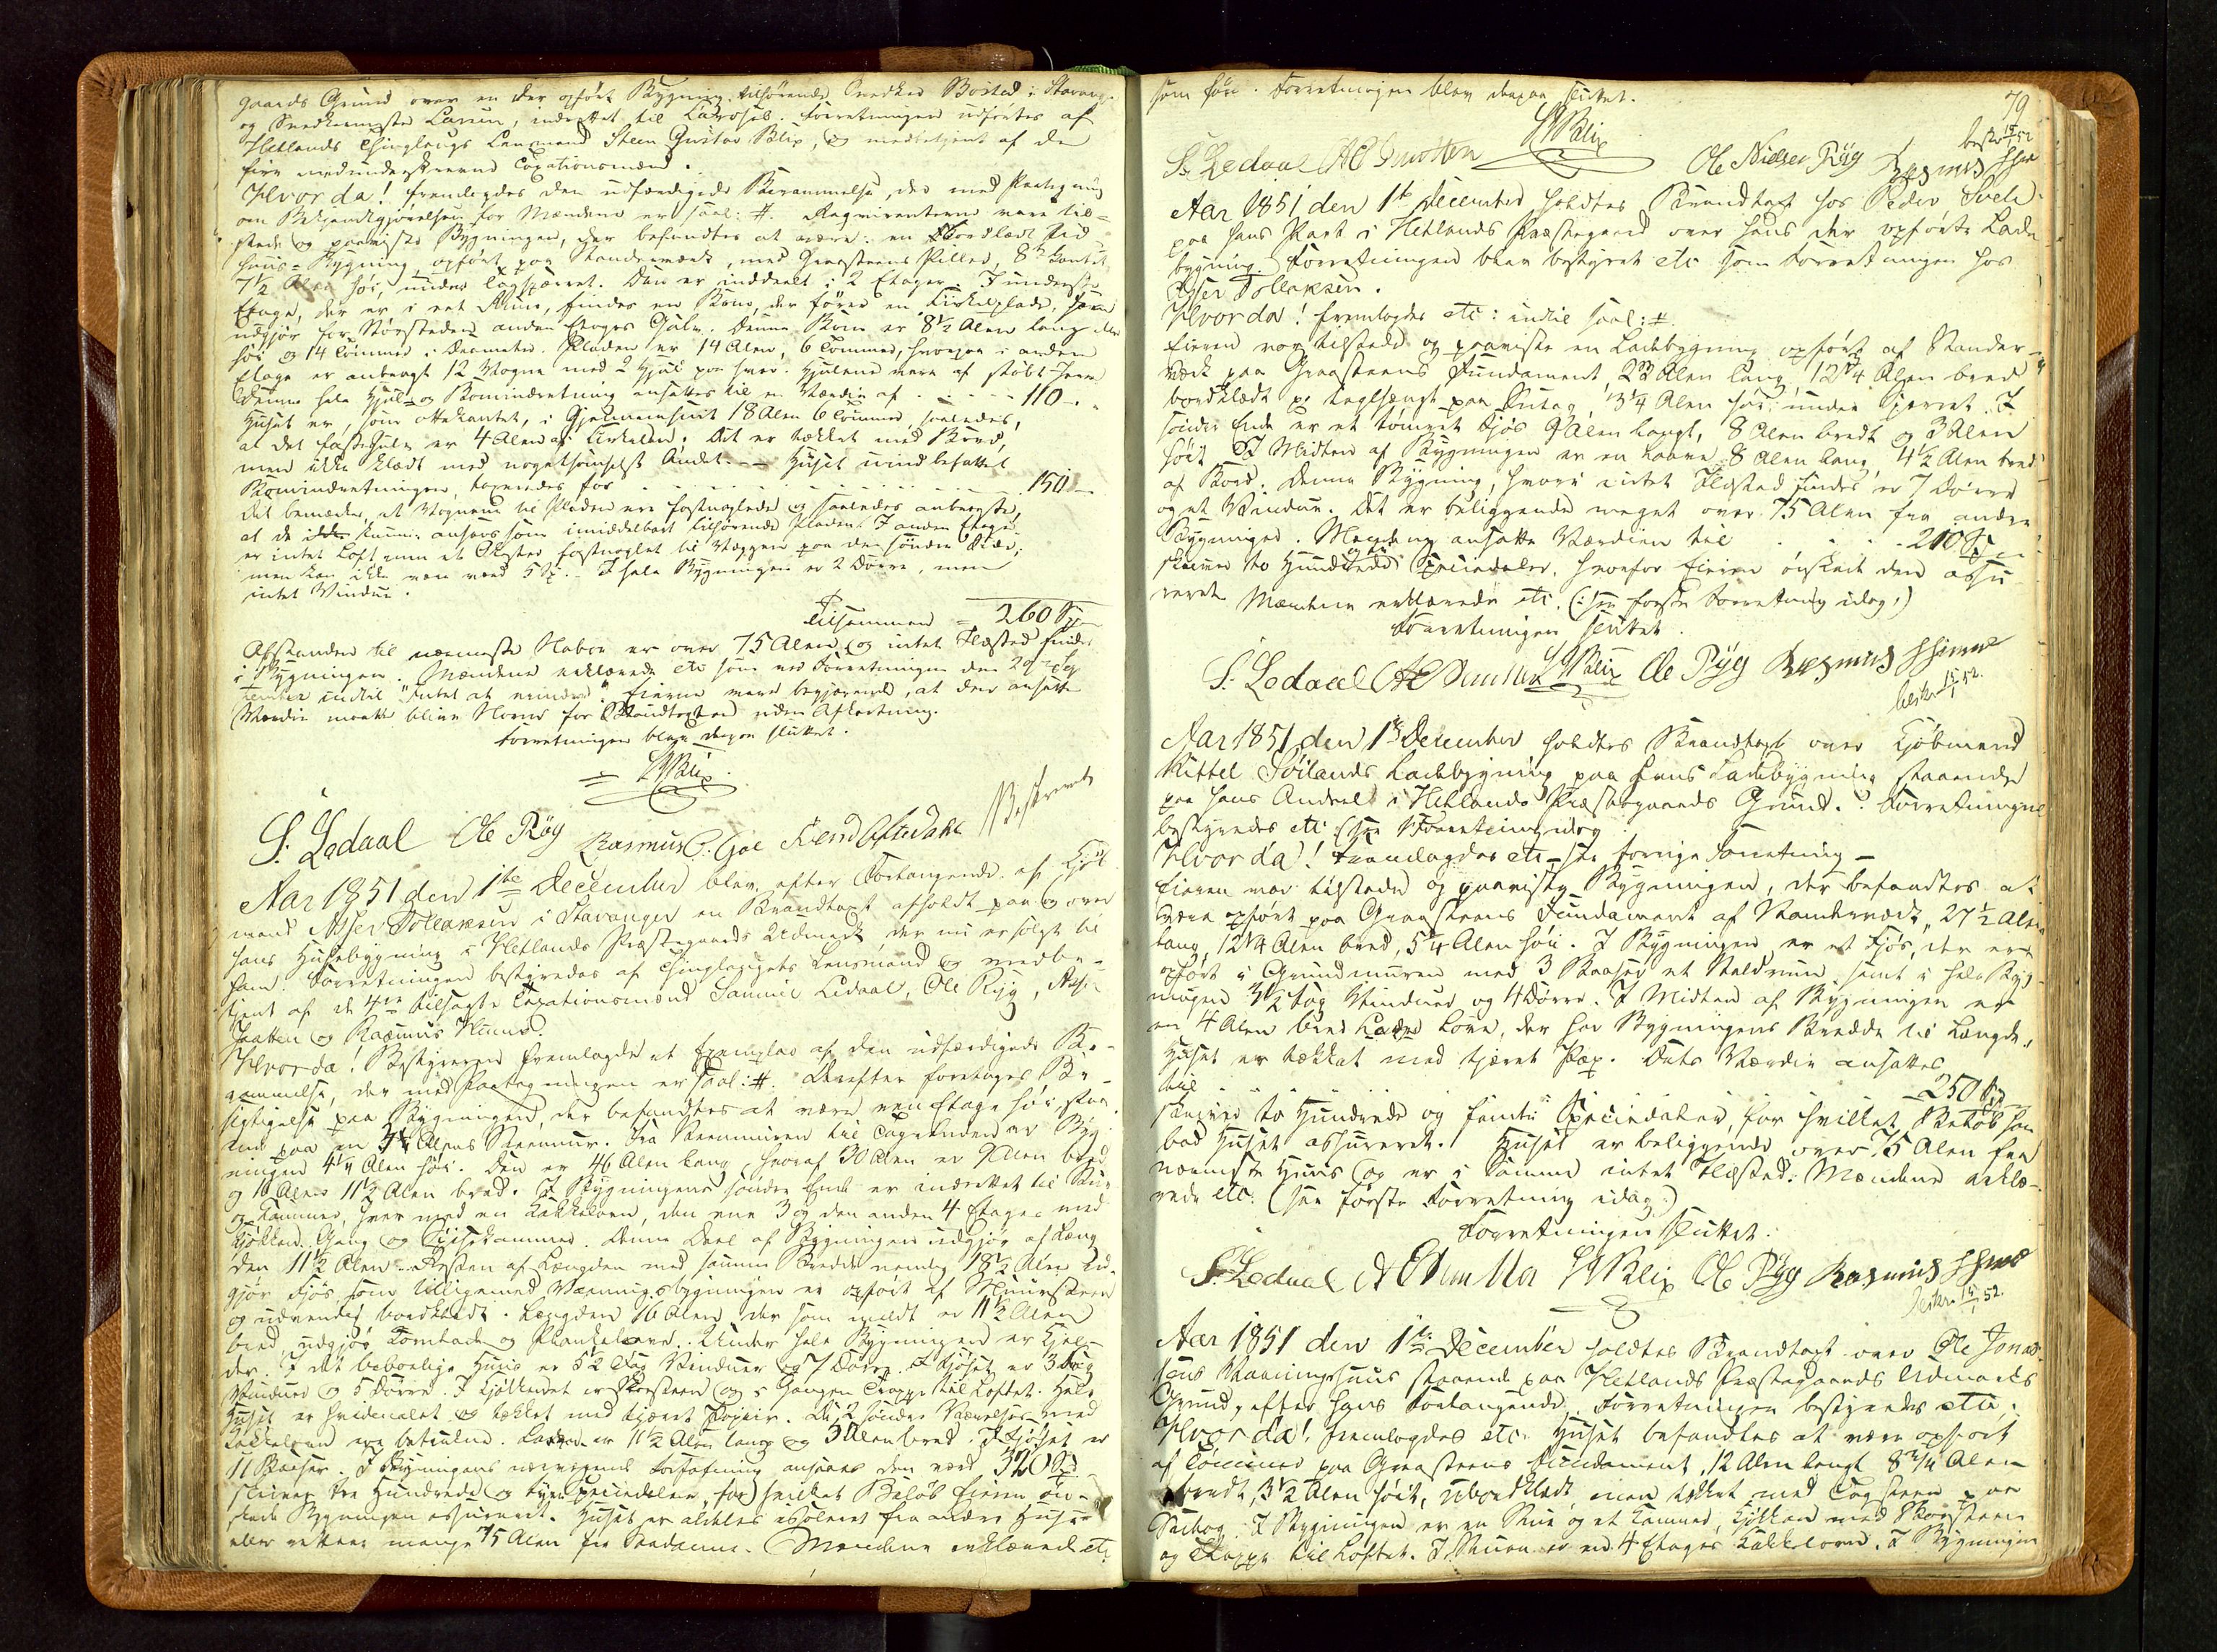 gaards Grund over en der opført Bygning, tilhørende Snedker Bosted i Stavang.
og Snedkermester Larsen, indrettet til
Hetlands Thinglaugs Lensmand Steen Gustav Blix, og medbetjent af de
fire medunderskrevne Taxationsmænd.
Hvorda! fremlagdes den udfærdigede Berammelse, der med Paategning
om Bekjendtgjørelsen for Mændene er saal: #. Requirenterne vare til-
stede og paaviste Bygningen, der befandtes at være: en
huus-Bygning opført paa Standerværk, med Graasteens Piller, 8te kantet
7 1/2 Alen høi, under Tagskjægget. Den er inddeelt i 2 Etager. I underste
Etage, der er i eet Rum, findes en Kone, der fører en Cirkelplade, som
udgjør for Størstedelen anden Etages Gulv. Denne Kone er 8 1/2 Alen lang eller
høi og 14 Tommer i Diameter. Pladen er 14 Alen, 6 Tommer, hvorpaa i anden
Etage er anbragt 12 Vogne med 2 Hjul paa hver. Hjulene vare af støbt Jern
Denne hele Hjul- og Konindretning ansattes til en Værdie af - - - - 110 -
Huset er, som ottekantet, i Gjennemsnit 18 Alen 6 Tommer, saaledes,
at det faste Gulv er 4 Alen af Cirkelen. Det er tækket med Bord,
men ikke klædt med nogetsomhelst Andet. - Huset uindbefattet
Konindretningen, taxeredes for - - - - - - 150 -
Det bemærkes, at Vognene til Pladen ere fastnaglede og saaledes anbragte,
at de ikke kunne ansees som umiddelbart tilhørende Pladen. I anden Etage
er intet Loft, men et fastnaglet til Væggen paa den søndre Side,
men kan ikke være værd 5 Sp. - I hele Bygningen er 2 Dørre, men
intet Vindue.
Tilsammen = 260 Sp
Afstanden til nærmeste Naboer er over 75 Alen, og intet Ildsted findes
i Bygningen. Mændene erklærede etc som ved Forretningen den 29de Sep
tember indtil "Intet at erindre". Eierne vare begjærende, at den ansatte
Værdie maatte blive Norm for Brandtaxten uden Afkortning.
Forretningen blev derpaa sluttet.
= SGBlix
S. Ledaal Ole Röÿ Rasmus
Beskrevet
Aar 1851 den 1te December blev, efter Forlangende af Kjøb-
mand Asser Tollaksen i Stavanger en Brandtaxt afholdt paa og over
hans Husebygning i Hetlands Præstegaards Udmark, der nu er solgt til
ham. Forretningen bestyredes af Thinglaugets Lensmand og medbe-
tjent af de 4re tilsagte Taxationsmænd Samuel Ledaal, Ole Ryg,
Jaatten og Rasmus Hinna.
Hvorda! Bestyreren fremlagde et Exemplar af den udfærdigede Be-
rammelse, der med Paategningen er saal: #. Derefter foretoges Be-
sigtigelse paa Bygningen, der befandtes at være een Etage høi, staa-
ende paa en Alens Steenmuur. Fra Steenmuren til Tagskindene er Byg-
ningen 4 1/4 Alen høi. Den er 46 Alen lang, hvoraf 30 Alen er Alen bred
og 16 Alen 11 1/2 Alen bred. I Bygningens søndre Ende er indrettet til Stue
og Kammer, hver med en Kakkelovn, den ene 3 og den anden 4 Etages med
Kjøkken, Gang og Spisekammer. Denne Deel af Bygningen udgjør af Læng-
den 11 1/2 Alen. Resten af Længden med samme Bredde nemlig 18 1/2 Alen ud-
gjør Fjøs, som tilligemed Vaaningsbygningen er opført af Muursteen
og udvendig bordklædt. Længden 16 Alen, der som meldt er 11 1/2 Alen
bred, udgjør Kornlade og Plankelaave. Under hele Bygningen er Kjel-
der. I det beboelige Huus er 5 1/2 Fag Vinduer og 7 Dørre. I Fjøset er 3 Fag
Vinduer og 5 Dørre. I Kjøkkenet er Skorsteen og i Gangen Trappe til Loftet. Hele
Huset er hvidmalet og tækket med tjæret Papir. De 2 søndre Værelser med
Kakkelovne ere betrukne. Laaven er 11 1/2 Alen lang og 3 Alen bred. I Fjøset er
11 Baaser. I Bygningens nærværende Forfatning ansaaes den værd 320 Spd
skriver tre Hundrede og tyve Speciedaler, for hvilket Beløb Eieren øn-
skede Bygningen assureret. Huset er aldeles isoleret fra andre Huse
eller rettere mange 75 Alen fra saadanne. Mændene erklærede etc
som før. Forretningen blev derpaa sluttet.
79
SGBlix
beskr 15/1 52
S. Ledaal Ole Nielsen Röÿ Rasmus Hinna
Aar 1851 den 1te December holdtes Brandtaxt hos Peder
paa hans Part i Hetlands Præstegaard over hans der opførte Lade
bygning. Forretningen blev bestyret etc som Forretningen hos
Asser Tollaksen.
Hvorda! fremlagdes etc: indtil saal: #
Eieren var tilstede og paaviste en Ladebygning opført af Stander-
værk paa Graasteens Fundament, 22 Alen lang, 12 1/4 Alen bred
bordklædt og taglagt paa Sutag, 3 1/4 Alen høi under Sperret. I
søndre Ende er et tømret Fjøs 9 Alen langt, 8 Alen bredt og 3 Alen
høit. I Midten af Bygningen er en Laave 8 Alen lang, 4 1/2 Alen bred
af Bord. Denne Bygning, hvori intet Ildsted findes er 7 Dørre
og et Vindue. Det er beliggende meget over 75 Alen fra andre
Bygninger. Mændene ansatte Værdien til - - - 210 Sp
skriver to Hundrede og ti Speciedaler, hvorfor Eieren ønskede den assu
reret. Mændene erklærede etc. (: see første Forretning idag:)
Forretningen sluttet.
S. Ledaal SGBlix Ole Röÿ Rasmus Hinna
beskr. 15/1 52.
Aar 1851 den 1te December holdtes Brandtaxt over Kjøbmand
Kittel Soilands Ladebygning paa hans Ladebygning staaende
paa hans Andeel i Hetlands Præstegaards Grund. Forretningen
bestyredes etc (see 1 Forretning idag
Hvorda! Fremlagdes etc - see forrige Forretning -
Eieren var tilstede og paaviste Bygningen, der befandtes at
være opført paa Graasteens Fundament af Standerværk, 27 1/2 Alen
lang, 12 1/4 Alen bred, 5 1/4 Alen høi. I Bygningen er et Fjøs, der er
opført i Grundmuren med 3 Baaser et Staldrum, samt i hele Byg
ningen 3 1/2 Fag Vinduer og 4 Dørre. I Midten af Bygningen er
en 4 Alen bred Lade Love, der har Bygningens Bredde til Længde.
Huset er tækket med tjæret Pap. Dets Værdie ansattes
til - - - - 250 Sp
skriver to Hundrede og femti Speciedaler, for hvilket Beløb han
bad Huset assureret. Huset er beliggende over 75 Alen fra
nærmeste Huus og er i samme intet Ildsted. Mændene erklæ-
rede etc. (see første Forretning idag:)
Forretningen sluttet.
S. Ledaal SGBlix Ole Röÿ Rasmus Hinna
Beskr. 15/1 52.
Aar 1851 den 1te December holdtes Brandtaxt over Ole Jonas-
sens Vaaningshuus staaende paa Hetlands Præstegaards Udmarks
Grund, efter hans Forlangende. Forretningen bestyredes etc.
Hvorda! fremlagdes etc. Huset befandtes at være opført
af Tømmer paa Graasteens Fundament, 12 Alen langt 8 3/4 Alen
bredt, 3 1/2 Alen høit, ubordklædt, men tækket med Tagsteen paa
Sutag. I Bygningen er en Stue og et Kammer, Kjøkken med Skorsteen
og Trappe til Loftet. I Stuen er en 4 Etages Kakkelovn. I Bygningen